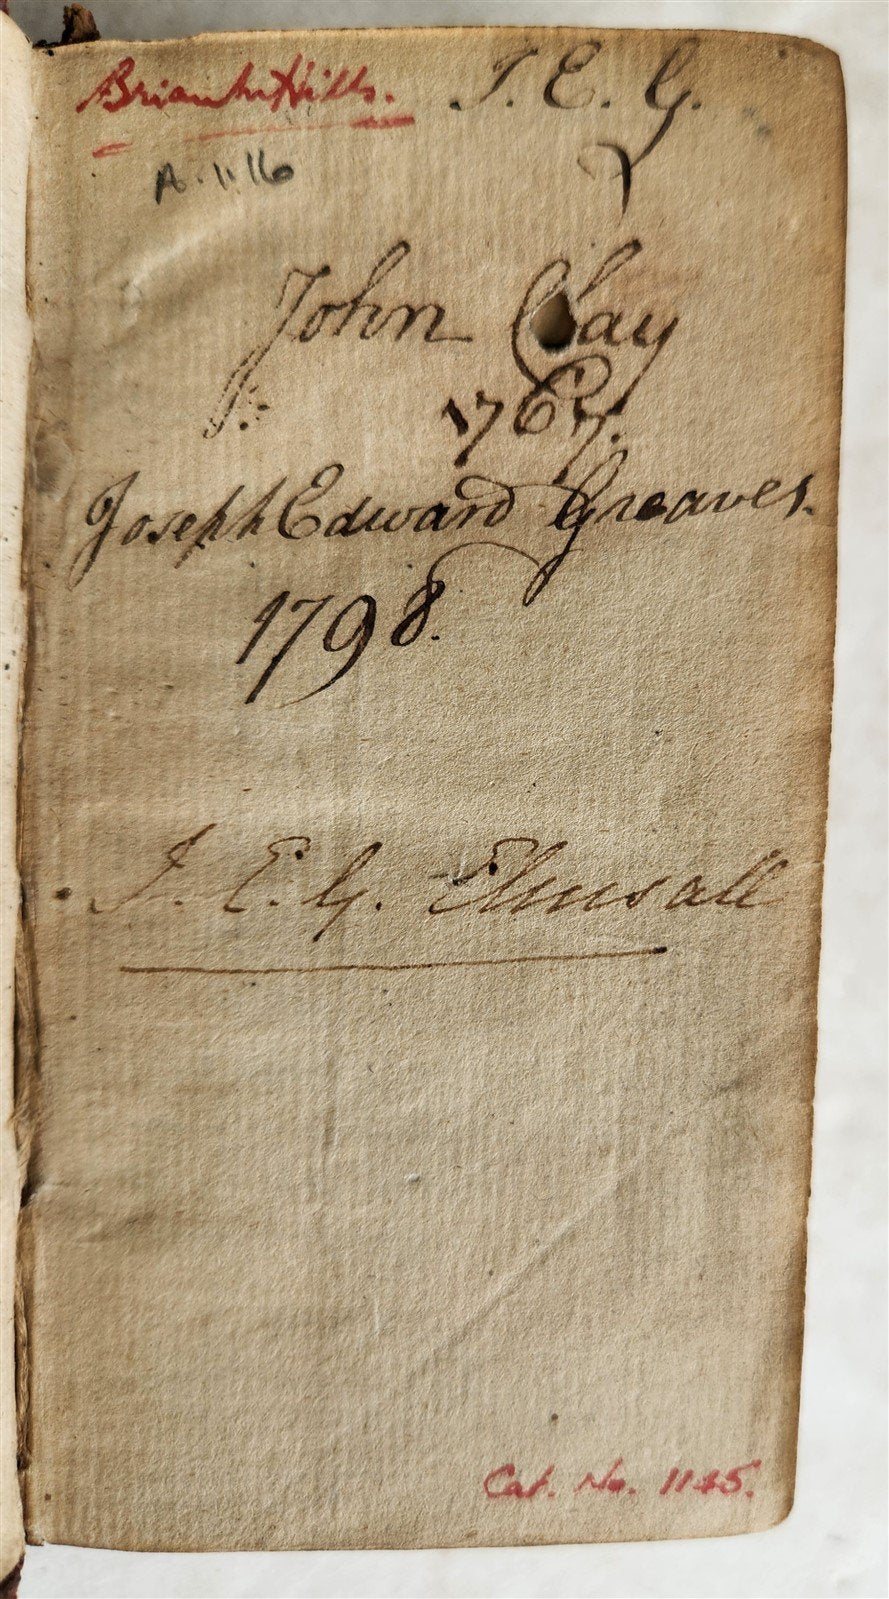 Brian M Hills. J. E. G.
A.11.16
John Clay
1767.
Joseph Edward Greaves.
1798.
J. E. G. Elmsall
Cat. No. 1145.